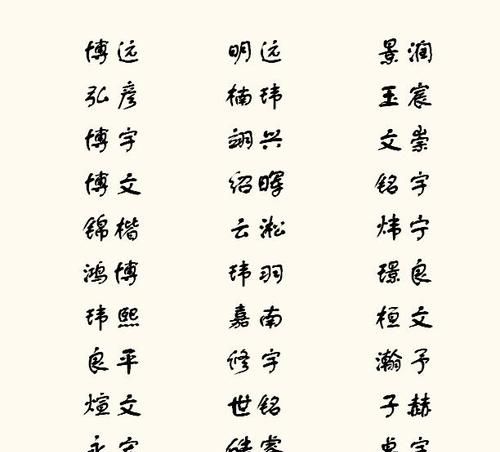 博远 明远 景润
弘彦 楠玮 玉宸
博宇 翊兴 文崇
博文 绍晖 铭宇
锦楷 云淞 炜宁
鸿博 玮羽 璟良
玮熙 嘉南 桓文
良平 修宇 瀚予
煊文 世铭 子赫